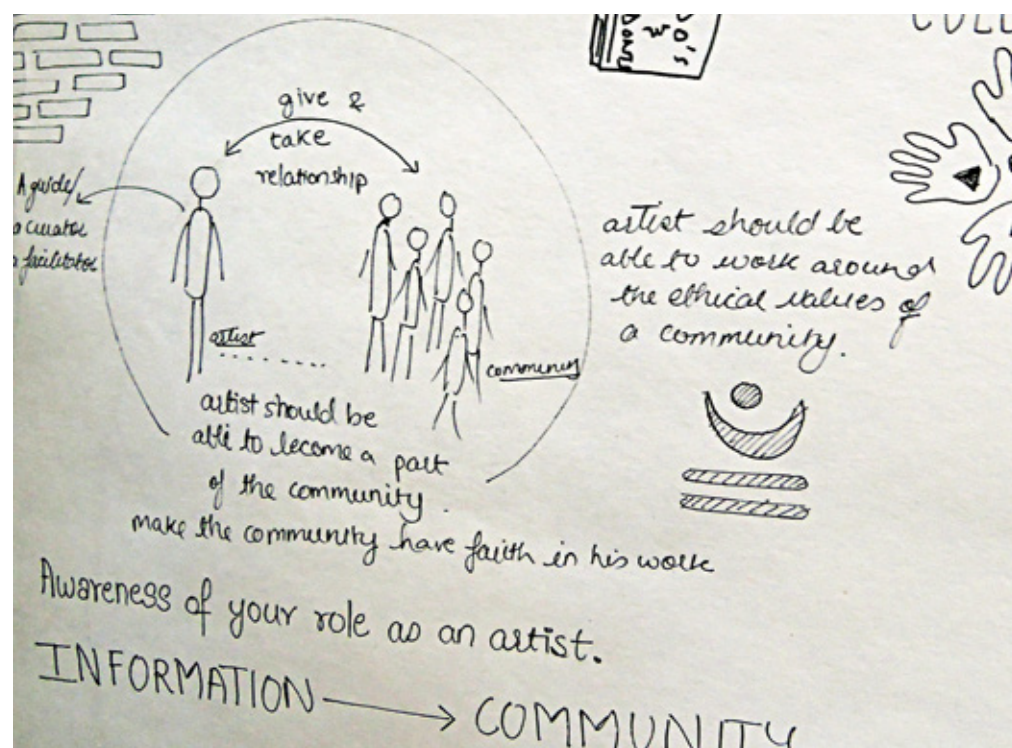 give &
take
relationship
A guide/
a curator
a facilitator
artist
community
artist should be
able to become a part
of the community.
make the community have faith in his work
artist should be
able to work around
the ethical values of
a community.
Awareness of your role as an artist.
INFORMATION → COMMUNITY